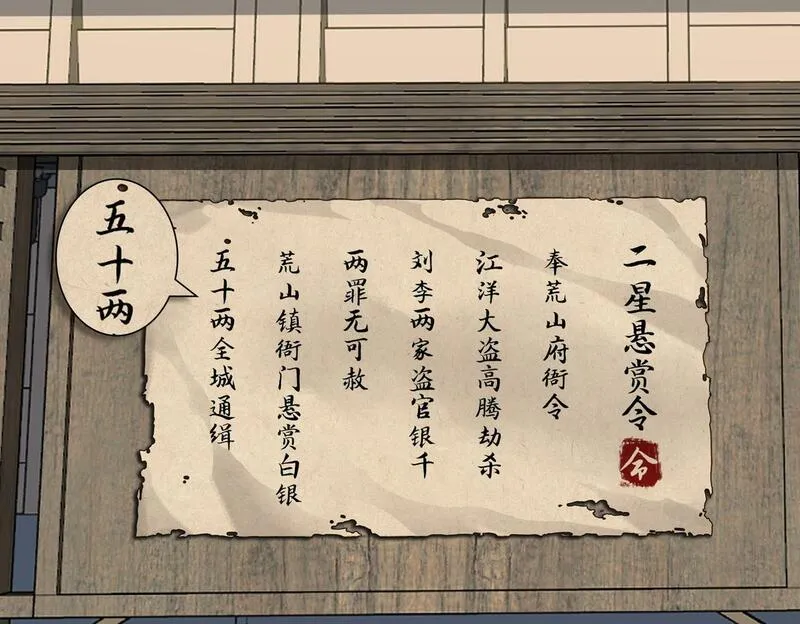 二星悬赏令
令
奉荒山府衙令
江洋大盗高腾劫杀
刘李两家盗官银千
两罪无可赦
荒山镇衙门悬赏白银
五十两全城通缉
五十两